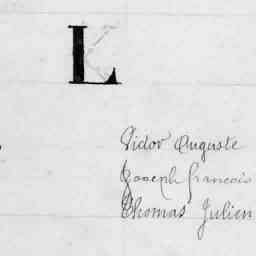 L
Victor Auguste
Joseph francois
Thomas Julien